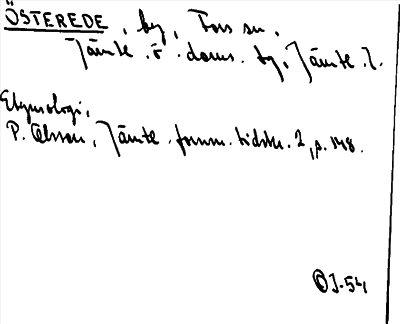 ÖSTEREDE, by, Fors sn,
Jämtl. ö. doms. by, Jämtl. l.
Etymologi,
P. Olsson, Jämtl. fornm. tidskr. 2, s. 148.
J.54